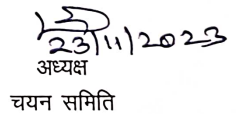 23/11/2023
अध्यक्ष
चयन समिति